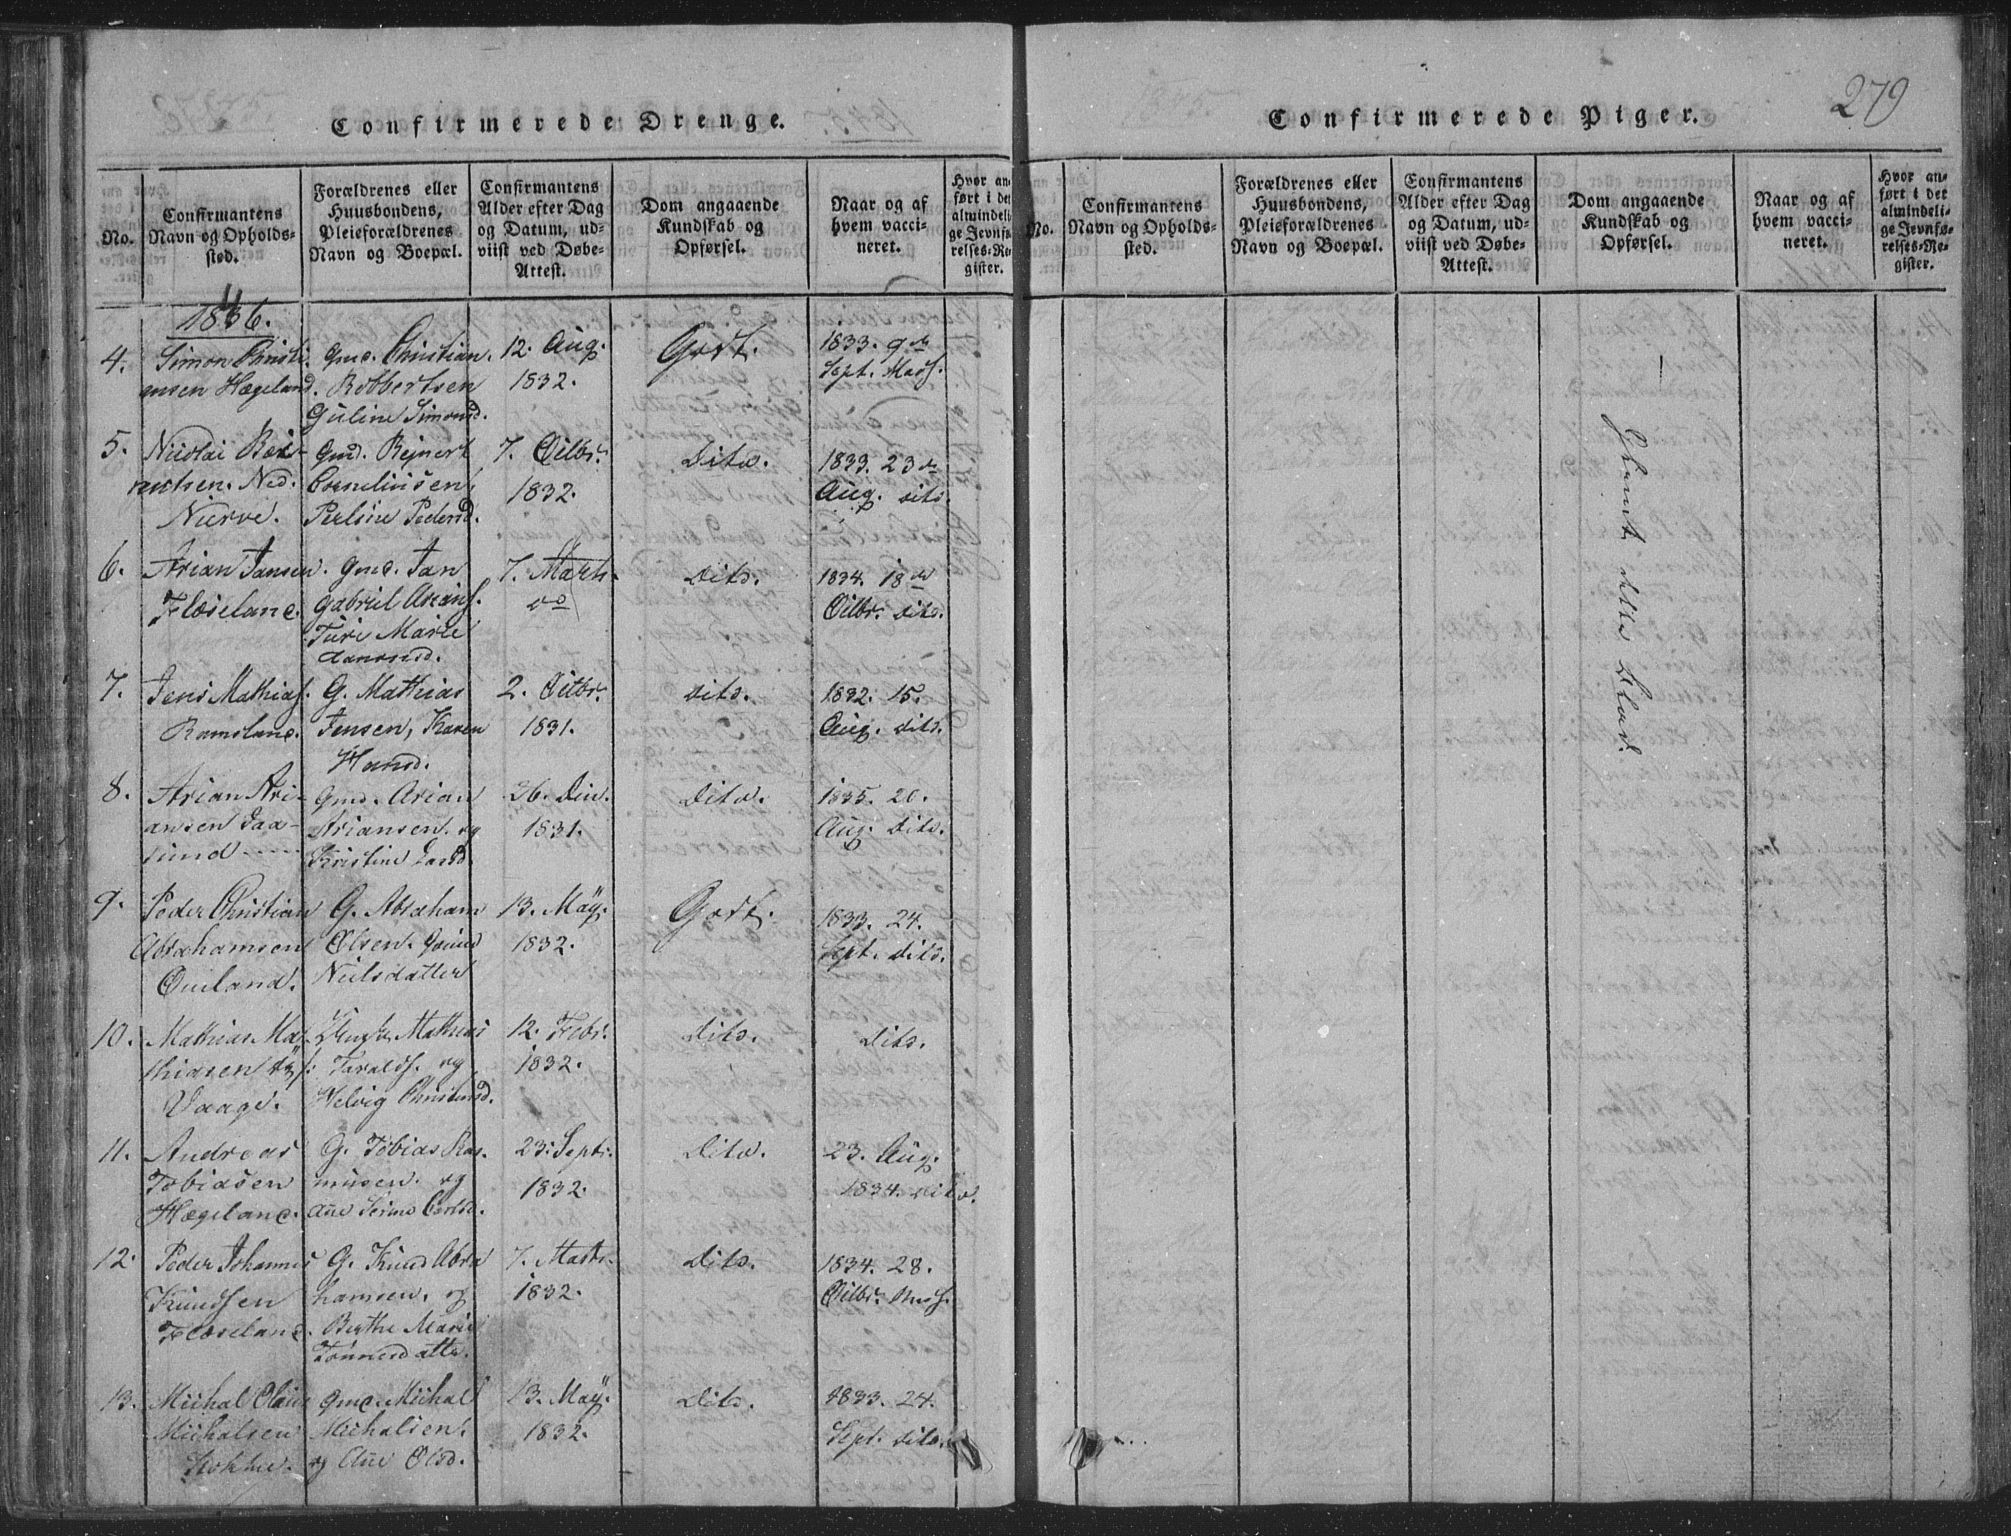 Confirmerede Drenge.
1845.
No.
Confirmantens Navn og Opholdssted.
Forældrenes eller Huusbondens, Pleieforældrenes Navn og Boepæl.
Confirmantens Alder efter Dag og Datum, udviist ved Døbe-Attest.
Dom angaaende Kundskab og Opførsel.
Naar og af hvem vaccineret.
Hvor anført i det almindelige Jevnførelses-Register.
1846.
4. Simon Christi- Gmd. Christian 12. Aug. Godt. 1833. 9de
ansen Hægeland. Robbertsen 1832. Sept. Mos.
Guline Simonsd.
5. Nicolai Rei- Gmd. Rejnert 7. Octbr. Dito. 1833. 23de
nertsen. Ned. Corneliusen, 1832. Aug. dito.
Nierve. Perline Pedersd.
6. Arian Jansen. Gmd. Jan 7. Marts. Dito. 1834. 18de
Floeseland. Gabriel Arians. do Octbr. dito.
Turi Marie
7. Jens Mathias. G. Mathias 2. Octbr. Dito. 1832. 15.
Ramsland. Jensen, Karen 1831. Aug. dito.
Hansd.
8. Arian Ari- Gmd. Arian 26. Din. Dito. 1835. 20.
ansen Faa- Ariansen. og 1831. Aug. dito.
sund Kristine Larsd.
9. Peder Christian G. Abraham 13. May. Godt. 1833. 24.
Abrahamsen Olsen. 1832. Sept. dito.
Omland. Neilsdatter
10. Mathias Ma- Mathias 12. Febr. Dito. Dito.
thiasen Taralds. og 1832.
Vaage. Helvig Christensd.
11. Andreas G. Tobias Ras- 23. Septr. Dito. 23. Aug.
Tobiasen musen. og 1832. 1834. dito.
Hægeland.
12. Peder Johannes G. Knud Abra 7. Marts. Dito. 1834. 28.
Knudsen hamsen. og 1832. Octbr. Mos.
Floeseland. Berthe Marie
Tønnesdatter.
13. Michal Olaus Gmd. Michal 13. May. Dito. 1833. 24.
Michalsen Michalsen. 1832. Sept. dito.
Stokke. og Ane Olsd.
Confirmerede Piger.
279
No.
Confirmantens Navn og Opholdssted.
Forældrenes eller Huusbondens, Pleieforældrenes Navn og Boepæl.
Confirmantens Alder efter Dag og Datum, udviist ved Døbe-Attest.
Dom angaaende Kundskab og Opførsel.
Naar og af hvem vaccineret.
Hvor anført i det almindelige Jevnførelses-Register.
Glemt dette blad.